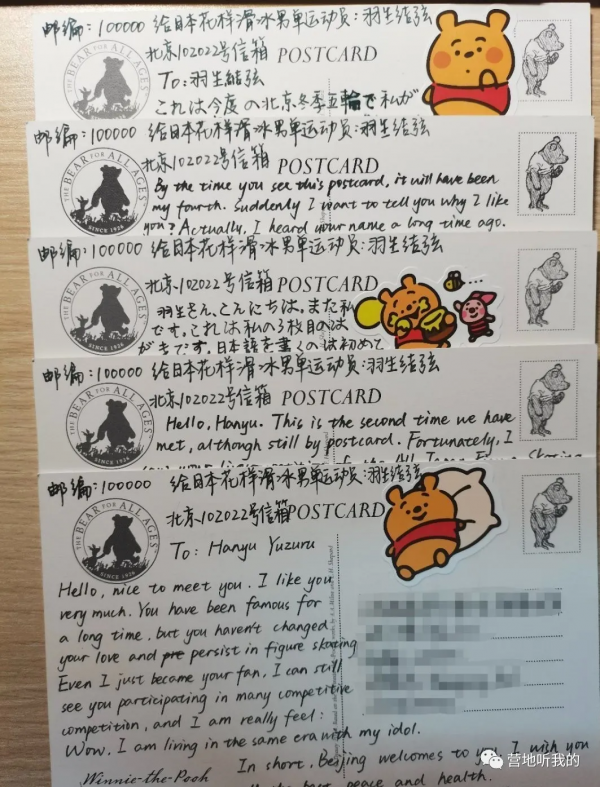 邮编:100000 给日本花样滑冰男单运动员:羽生结弦
北京102022号信箱
POSTCARD
To:羽生結弦
これは今度の北京冬季五輪で私が
邮编:100000 给日本花样滑冰男单运动员:羽生结弦
北京102022号信箱
POSTCARD
THE BEAR FOR ALL AGES
SINCE 1926
By the time you see this postcard, it will have been
my fourth. Suddenly I want to tell you why I like
you? Actually, I heard your name a long time ago.
邮编:100000 给日本花样滑冰男单运动员:羽生结弦
北京102022号信箱
THE BEAR FOR ALL AGES
SINCE 1926
羽生さん、こんにちは。また私
です。これは私の3枚目のは
がきです。日本語を書くのは初めて
邮编:100000 给日本花样滑冰男单运动员:羽生结弦
北京102022号信箱
POSTCARD
THE BEAR FOR ALL AGES
SINCE 1926
Hello, Hanyu. This is the second time we have
met, although still by postcard. Fortunately, I
邮编:100000 给日本花样滑冰男单运动员:羽生结弦
北京102022号信箱
POSTCARD
THE BEAR FOR ALL AGES
SINCE 1926
To: Hanyu Yuzuru
Hello, nice to meet you. I like you
very much. You have been famous for
a long time, but you haven't changed
your love and persist in figure skating
Even I just became your fan, I can still
see you participating in many competitive
competition, and I am really feel:
Wow, I am living in the same era with my idol.
In short, Beijing welcomes to you. I wish you
Winnie-the-Pooh
peace and health.
营地听我的